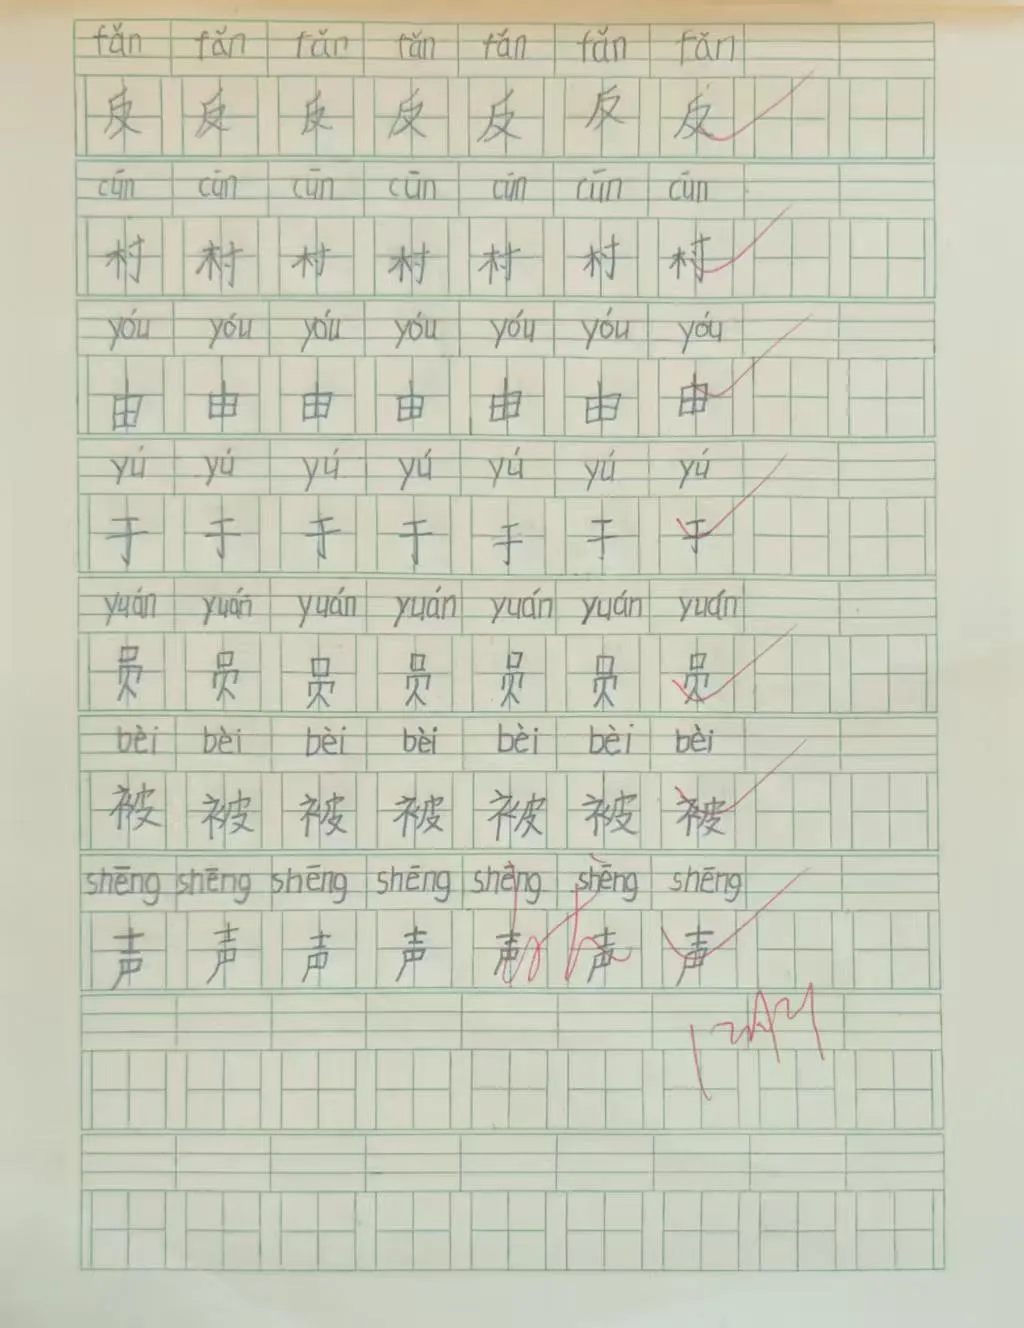 fǎn fǎn fǎn fǎn fǎn fǎn fǎn
反 反 反 反 反 反 反
cūn cūn cūn cūn cūn cūn cūn
村 村 村 村 村 村 村
yóu yóu yóu yóu yóu yóu yóu
由 由 由 由 由 由 由
yú yú yú yú yú yú yú
于 于 于 于 于 于 于
yuán yuán yuán yuán yuán yuán yuán
员 员 员 员 员 员 员
bèi bèi bèi bèi bèi bèi bèi
被 被 被 被 被 被 被
shēng shēng shēng shēng shēng shēng shēng
声 声 声 声 声 声 声